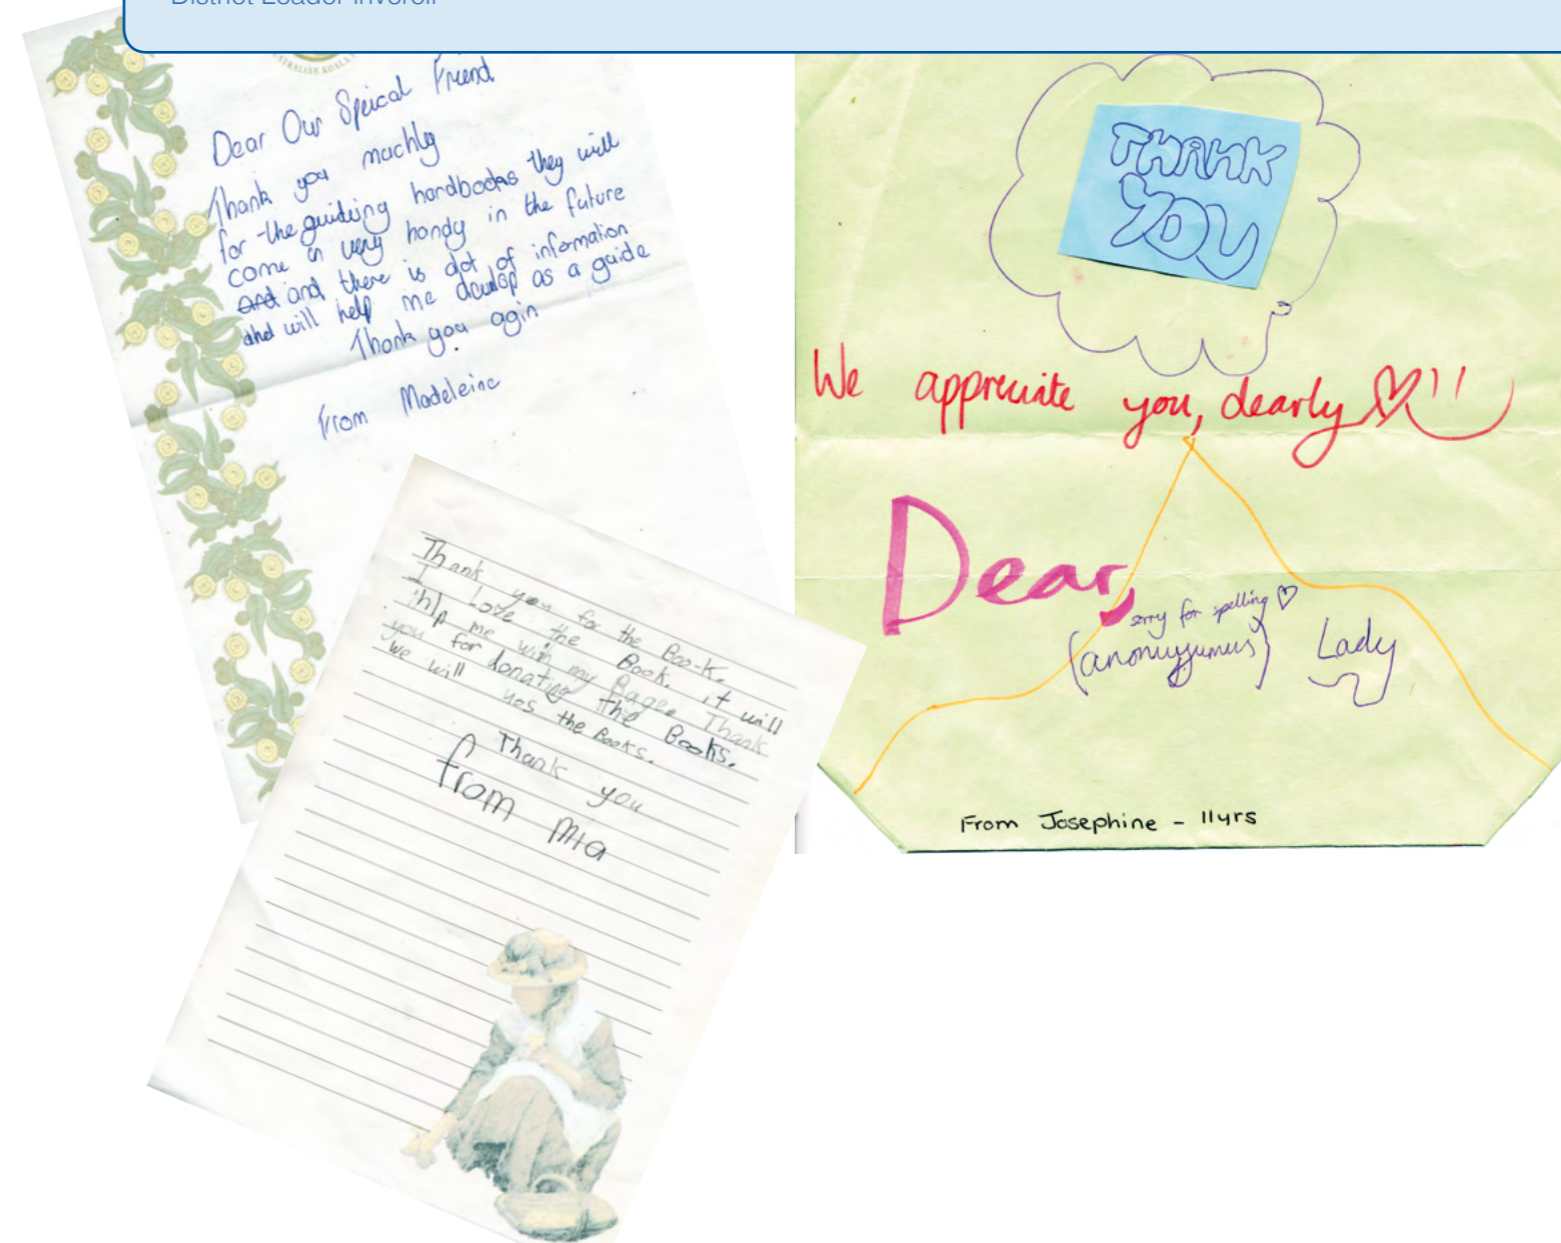 District Leader Inverell
Dear Our Speical Friend
Thank you muchly
for the guiding handbooks they will
come in very handy in the future
and and there is alot of information
and will help me develop as a guide
Thank you agin
From Madeleine
Thank you for the Boo-k.
I Love the Book. it will
hlp me with my Bage. Thank
you for donating the Books.
We will uos the Books.
Thank you
from Mia
THANK
YOU
We appreciate you, dearly
Dear,
sorry for spelling
(anonuyyumus) Lady
From Josephine - 11yrs